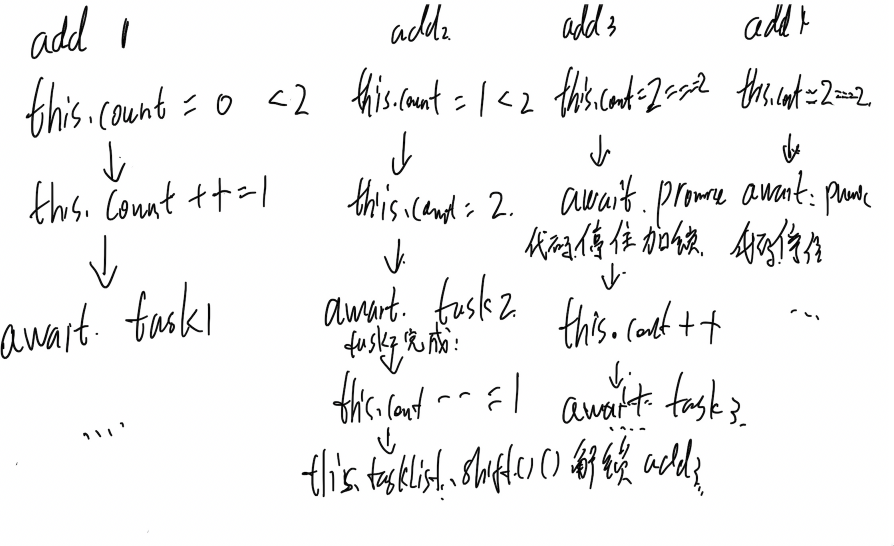 add 1
this.count = 0 < 2
↓
this.count ++ = 1
↓
await. task1
....
add2
this.count = 1 < 2
↓
this.count = 2.
↓
await. task2
task2完成:
↓
this.count -- = 1
↓
this.tasklist.shift()() 解锁 add3
add3
this.count=2===2
↓
await. promise
代码停住 加锁.
↓
this.count ++
↓
await task3
....
add4
this.count=2===2.
↓
await: promise
代码停住
...